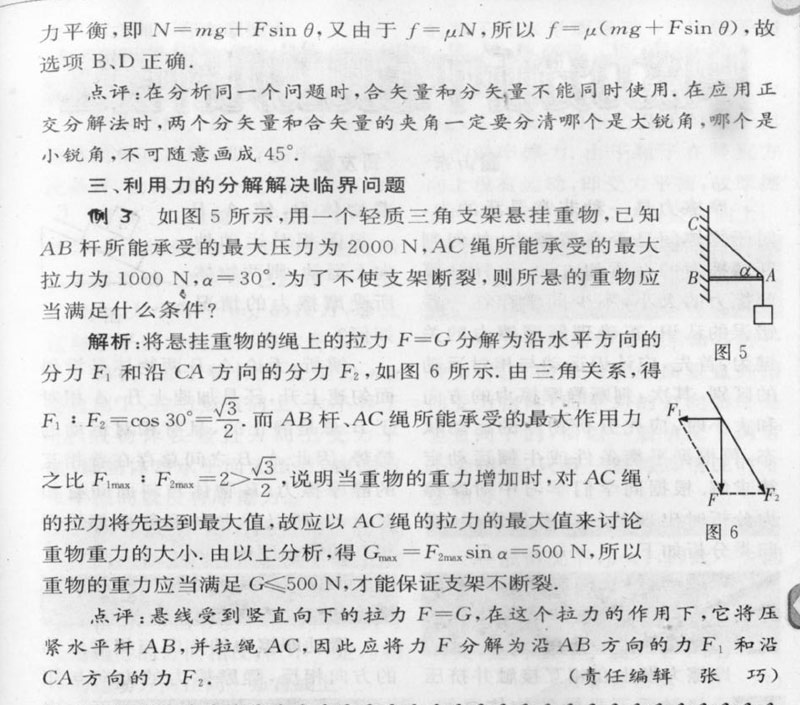 力平衡,即 N=mg+Fsin θ,又由于 f=μN,所以 f=μ(mg+Fsin θ),故
选项 B、D 正确.
点评:在分析同一个问题时,合矢量和分矢量不能同时使用.在应用正
交分解法时,两个分矢量和合矢量的夹角一定要分清哪个是大锐角,哪个是
小锐角,不可随意画成 45°.
三、利用力的分解解决临界问题
例 3 如图 5 所示,用一个轻质三角支架悬挂重物,已知
AB 杆所能承受的最大压力为 2000 N,AC 绳所能承受的最大
拉力为 1000 N,α=30°.为了不使支架断裂,则所悬的重物应
当满足什么条件?
C
B
α
A
图 5
解析:将悬挂重物的绳上的拉力 F=G 分解为沿水平方向的
分力 F₁ 和沿 CA 方向的分力 F₂,如图 6 所示.由三角关系,得
F₁:F₂=cos 30°=√3/2.而 AB 杆、AC 绳所能承受的最大作用力
之比 F₁max:F₂max=2>√3/2,说明当重物的重力增加时,对 AC 绳
的拉力将先达到最大值,故应以 AC 绳的拉力的最大值来讨论
重物重力的大小.由以上分析,得 Gmax=F₂max sin α=500 N,所以
重物的重力应当满足 G≤500 N,才能保证支架不断裂.
F₁
F
F₂
图 6
点评:悬线受到竖直向下的拉力 F=G,在这个拉力的作用下,它将压
紧水平杆 AB,并拉绳 AC,因此应将力 F 分解为沿 AB 方向的力 F₁ 和沿
CA 方向的力 F₂.
(责任编辑 张 巧)